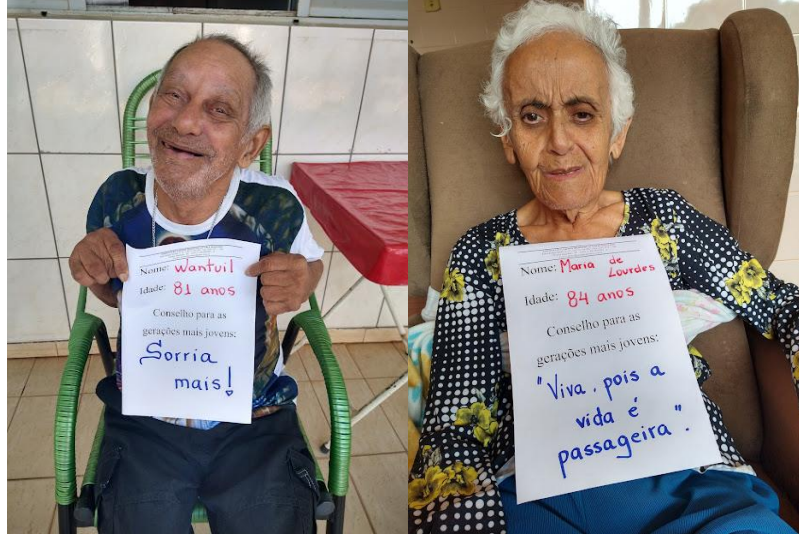 Nome: Wantuil
Idade: 81 anos
Conselho para as
gerações mais jovens:
Sorria
mais!
Nome: Maria de
Lourdes
Idade: 84 anos
Conselho para as
gerações mais jovens:
"Viva, pois a
vida é
passageira".